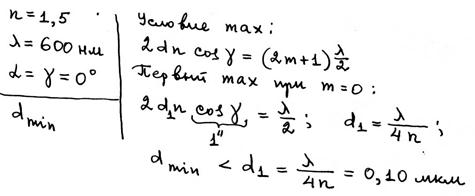 n = 1,5
λ = 600 нм
α = γ = 0°
d min
Условие max:
2dn cos γ = (2m+1) λ/2
Первый max при m=0:
2d₁n cos γ = λ/2 ; d₁ = λ/4n ;
1"
d min < d₁ = λ/4n = 0,10 мкм